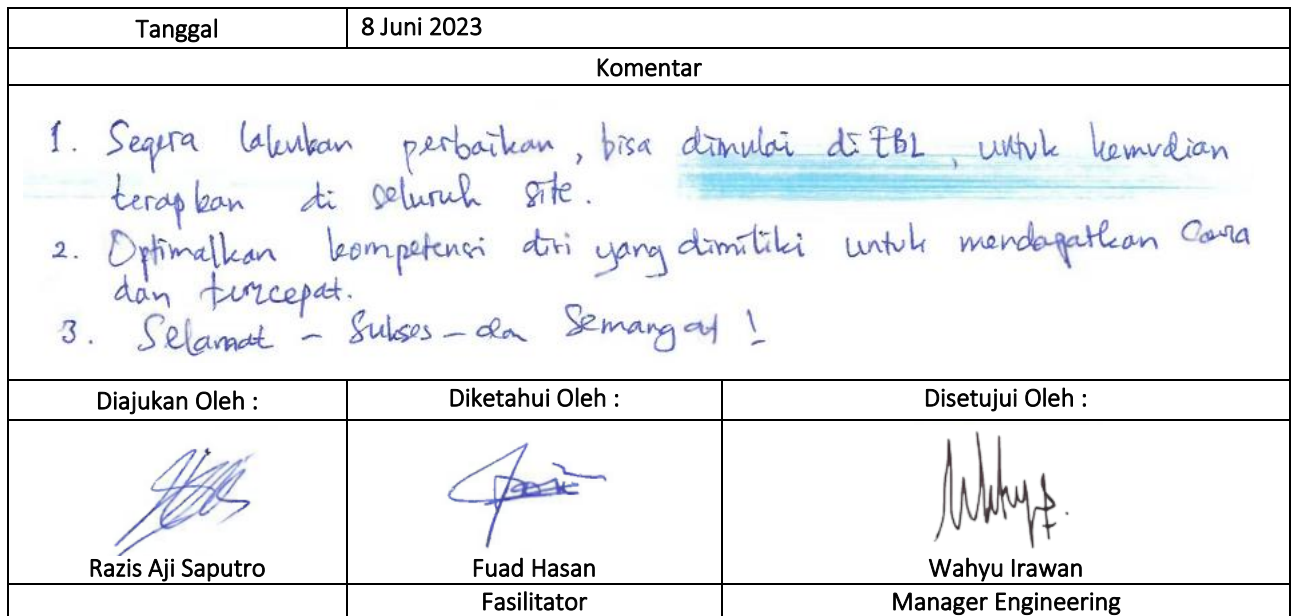 Tanggal 8 Juni 2023
Komentar
1. Segera lakukan perbaikan, bisa dimulai di EBL, untuk kemudian
terapkan di seluruh site.
2. Optimalkan kompetensi diri yang dimiliki untuk mendapatkan cara
dan tercepat.
3. Selamat - Sukses - dan Semangat !
Diajukan Oleh : Diketahui Oleh : Disetujui Oleh :
Razis Aji Saputro Fuad Hasan Wahyu Irawan
Fasilitator Manager Engineering